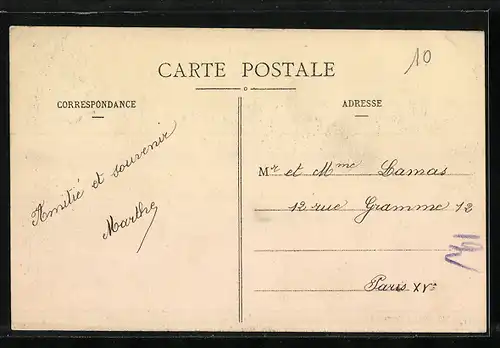 10
CARTE POSTALE
CORRESPONDANCE
ADRESSE
Amitié et souvenir
Marthe
Mr et Mme Lamas
12 rue Gramme 12
Paris XVe